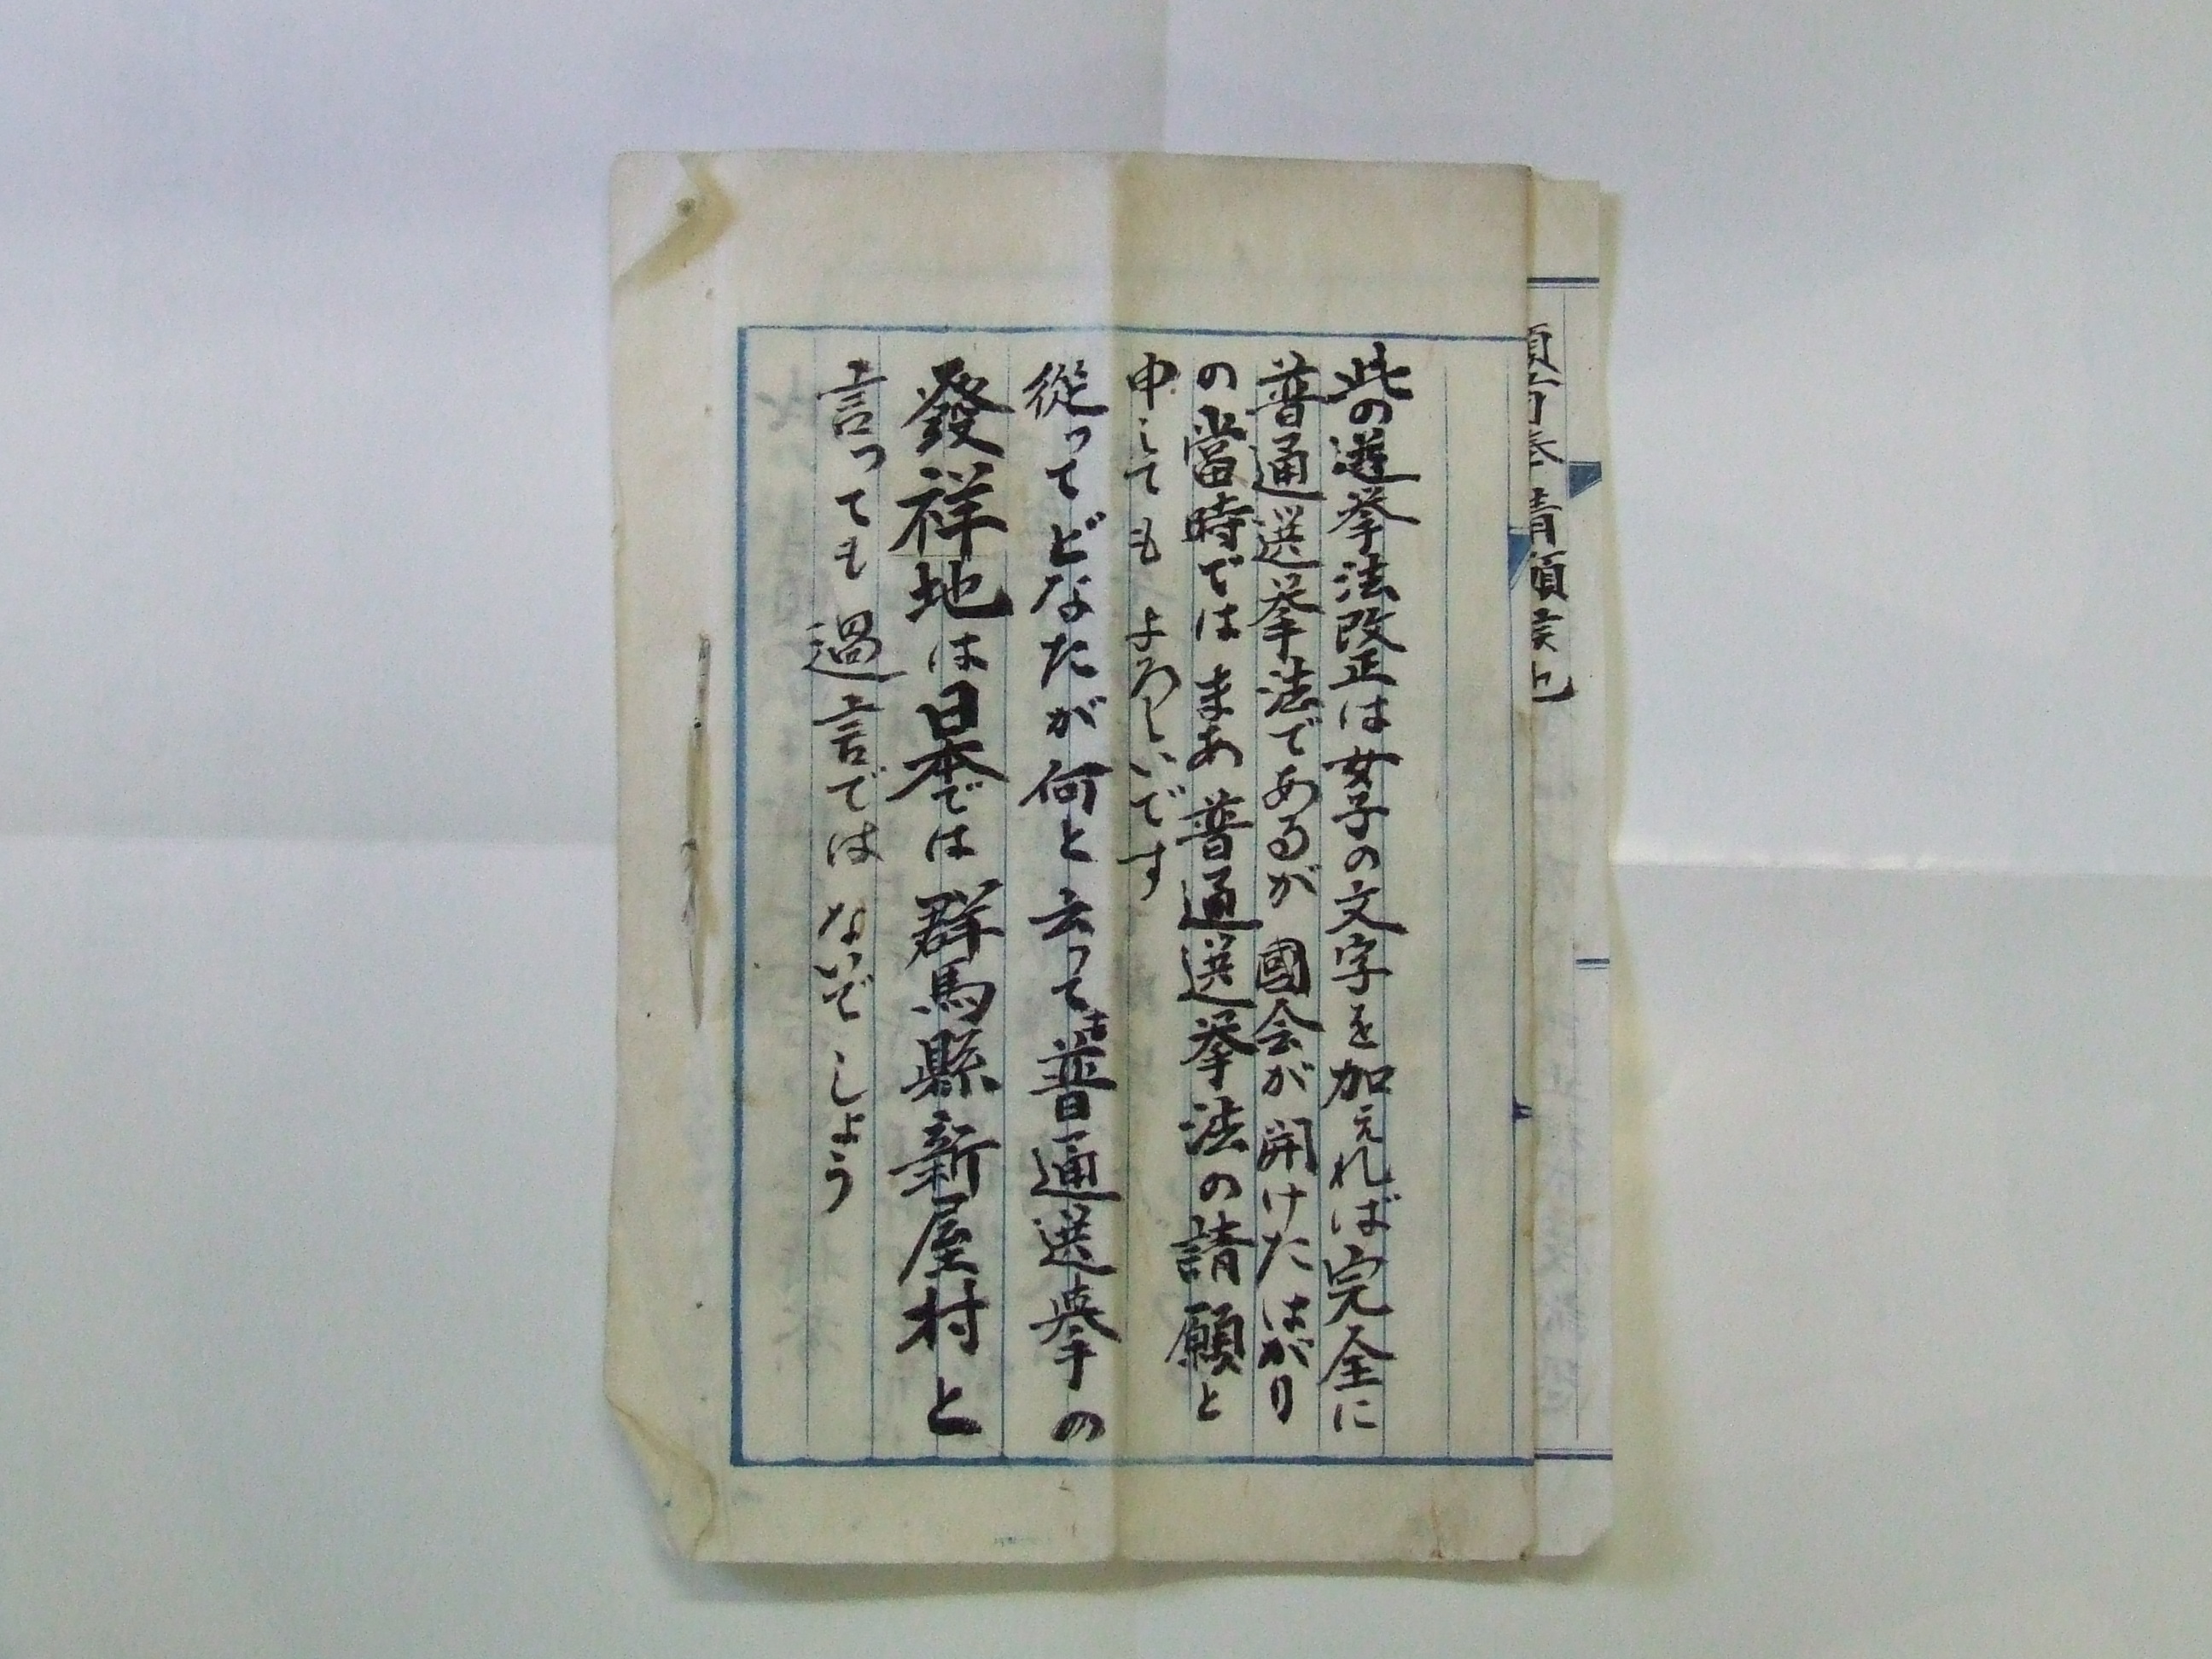 此の選挙法改正は女子の文字を加えれば完全に
普通選挙法であるが國会が開けたばがり
の當時ではまあ普通選挙法の請願と
申してもよろしいです
從ってどなたが何と云っても普通選擧の
發祥地は日本では群馬縣新屋村と
言っても過言ではないでしょう